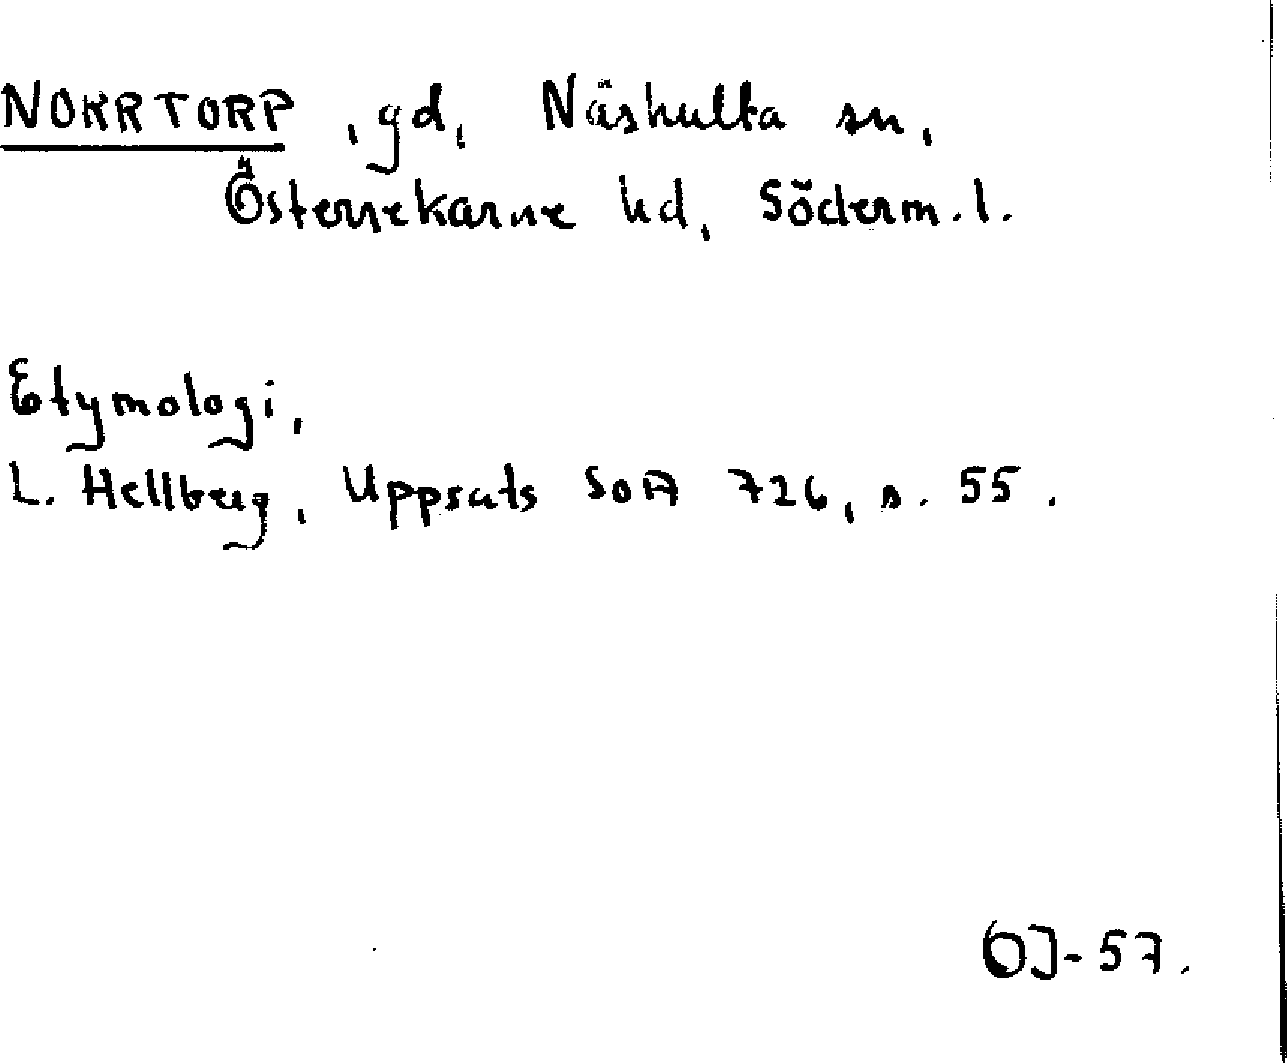 NORRTORP, gd, Näshulta sn,
Österrekarne hd, Söderm. l.
Etymologi,
L. Hellberg, Uppsats SOA 726, s. 55.
OJ-57.